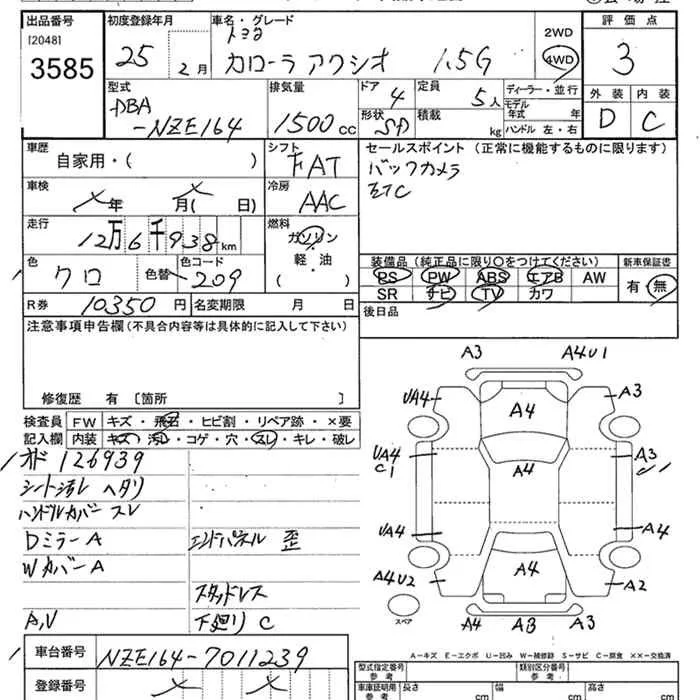 出品番号
[2048]
3585
初度登録年月
25 2月
車名・グレード
トヨタ
カローラ アクシオ 1.5G
2WD
4WD
評価点
3
外装 内装
D C
型式
DBA
-NZE164
排気量
1500cc
ドア
4
形状
SD
定員
5人
積載
kg
ディーラー・並行
モデル年式 年
ハンドル 左・右
車歴
自家用・( )
シフト
FAT
セールスポイント (正常に機能するものに限ります)
バックカメラ
ETC
車検
年 月( 日)
冷房
AAC
走行
12万6千938km
燃料
ガソリン
軽・油
・
( )
色
クロ
色替
色コード
209
装備品(純正品に限り〇をつけてください)
PS PW ABS エアB AW
SR ナビ TV カワ
新車保証書
有・無
R券
10350円
名変期限 月 日
後日品
注意事項申告欄(不具合内容等は具体的に記入して下さい)
修復歴 有〔箇所 〕
検査員記入欄
FW キズ・飛石・ヒビ割・リペア跡・×要
内装 キズ・汚レ・コゲ・穴・スレ・キレ・破レ
オド 126939
シート汚レ ヘタリ
ハンドルカバー スレ
DミラーA
エンドパネル 歪
WカバーA
スタッドレス
A,V
下廻りC
A3 A4U1
UA4 A4 A3
UA4 C1 A4 A3
UA4 A4
A4U2 A4 A2
スペア
A4 A3 A3
A-キズ E-エクボ U-凹み W-補修跡 S-サビ C-腐食 XX-交換済
車台番号
NZE164-7011239
登録番号
型式指定番号
参考
類別区分番号
車庫証明用
参考
長さ cm
幅 cm
高さ cm